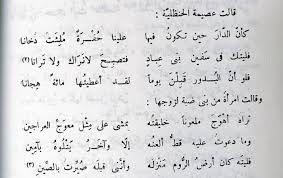 قالت عصيمة الحنظليّة :
كأنّ الدّار حين تكون فيها علينا حُفْرة مُلِئت دُخانا
فليتك فى سفين بنى عباد فتصبح لا نراك ولا ترانا (٢)
فلو أنّ البُدور قَبِلْن يوماً لقد أعطيتُها مائةً هِجانا
وقالت امرأة من بنى ضبة لزوجها :
تراه أهوج ملعوناً خليقته يمشى على مِثْل معوَجّ العراجين
وما دعوت عليه قطّ ألعنه إلّا وآخَرُ يَتْلُوه بآمين
فليته كان أرضُ الرّوم مَنزلَه وأننى قبله صُيِّرتُ بالصّين (٣)